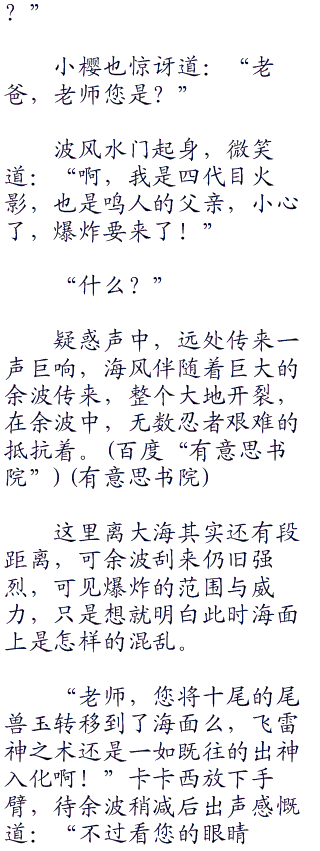 ？”
小樱也惊讶道：“老
爸，老师您是？”
波风水门起身，微笑
道：“啊，我是四代目火
影，也是鸣人的父亲，小心
了，爆炸要来了！”
“什么？”
疑惑声中，远处传来一
声巨响，海风伴随着巨大的
余波传来，整个大地开裂，
在余波中，无数忍者艰难的
抵抗着。(百度“有意思书
院”)(有意思书院)
这里离大海其实还有段
距离，可余波刮来仍旧强
烈，可见爆炸的范围与威
力，只是想就明白此时海面
上是怎样的混乱。
“老师，您将十尾的尾
兽玉转移到了海面么，飞雷
神之术还是一如既往的出神
入化啊！”卡卡西放下手
臂，待余波稍减后出声感慨
道：“不过看您的眼睛